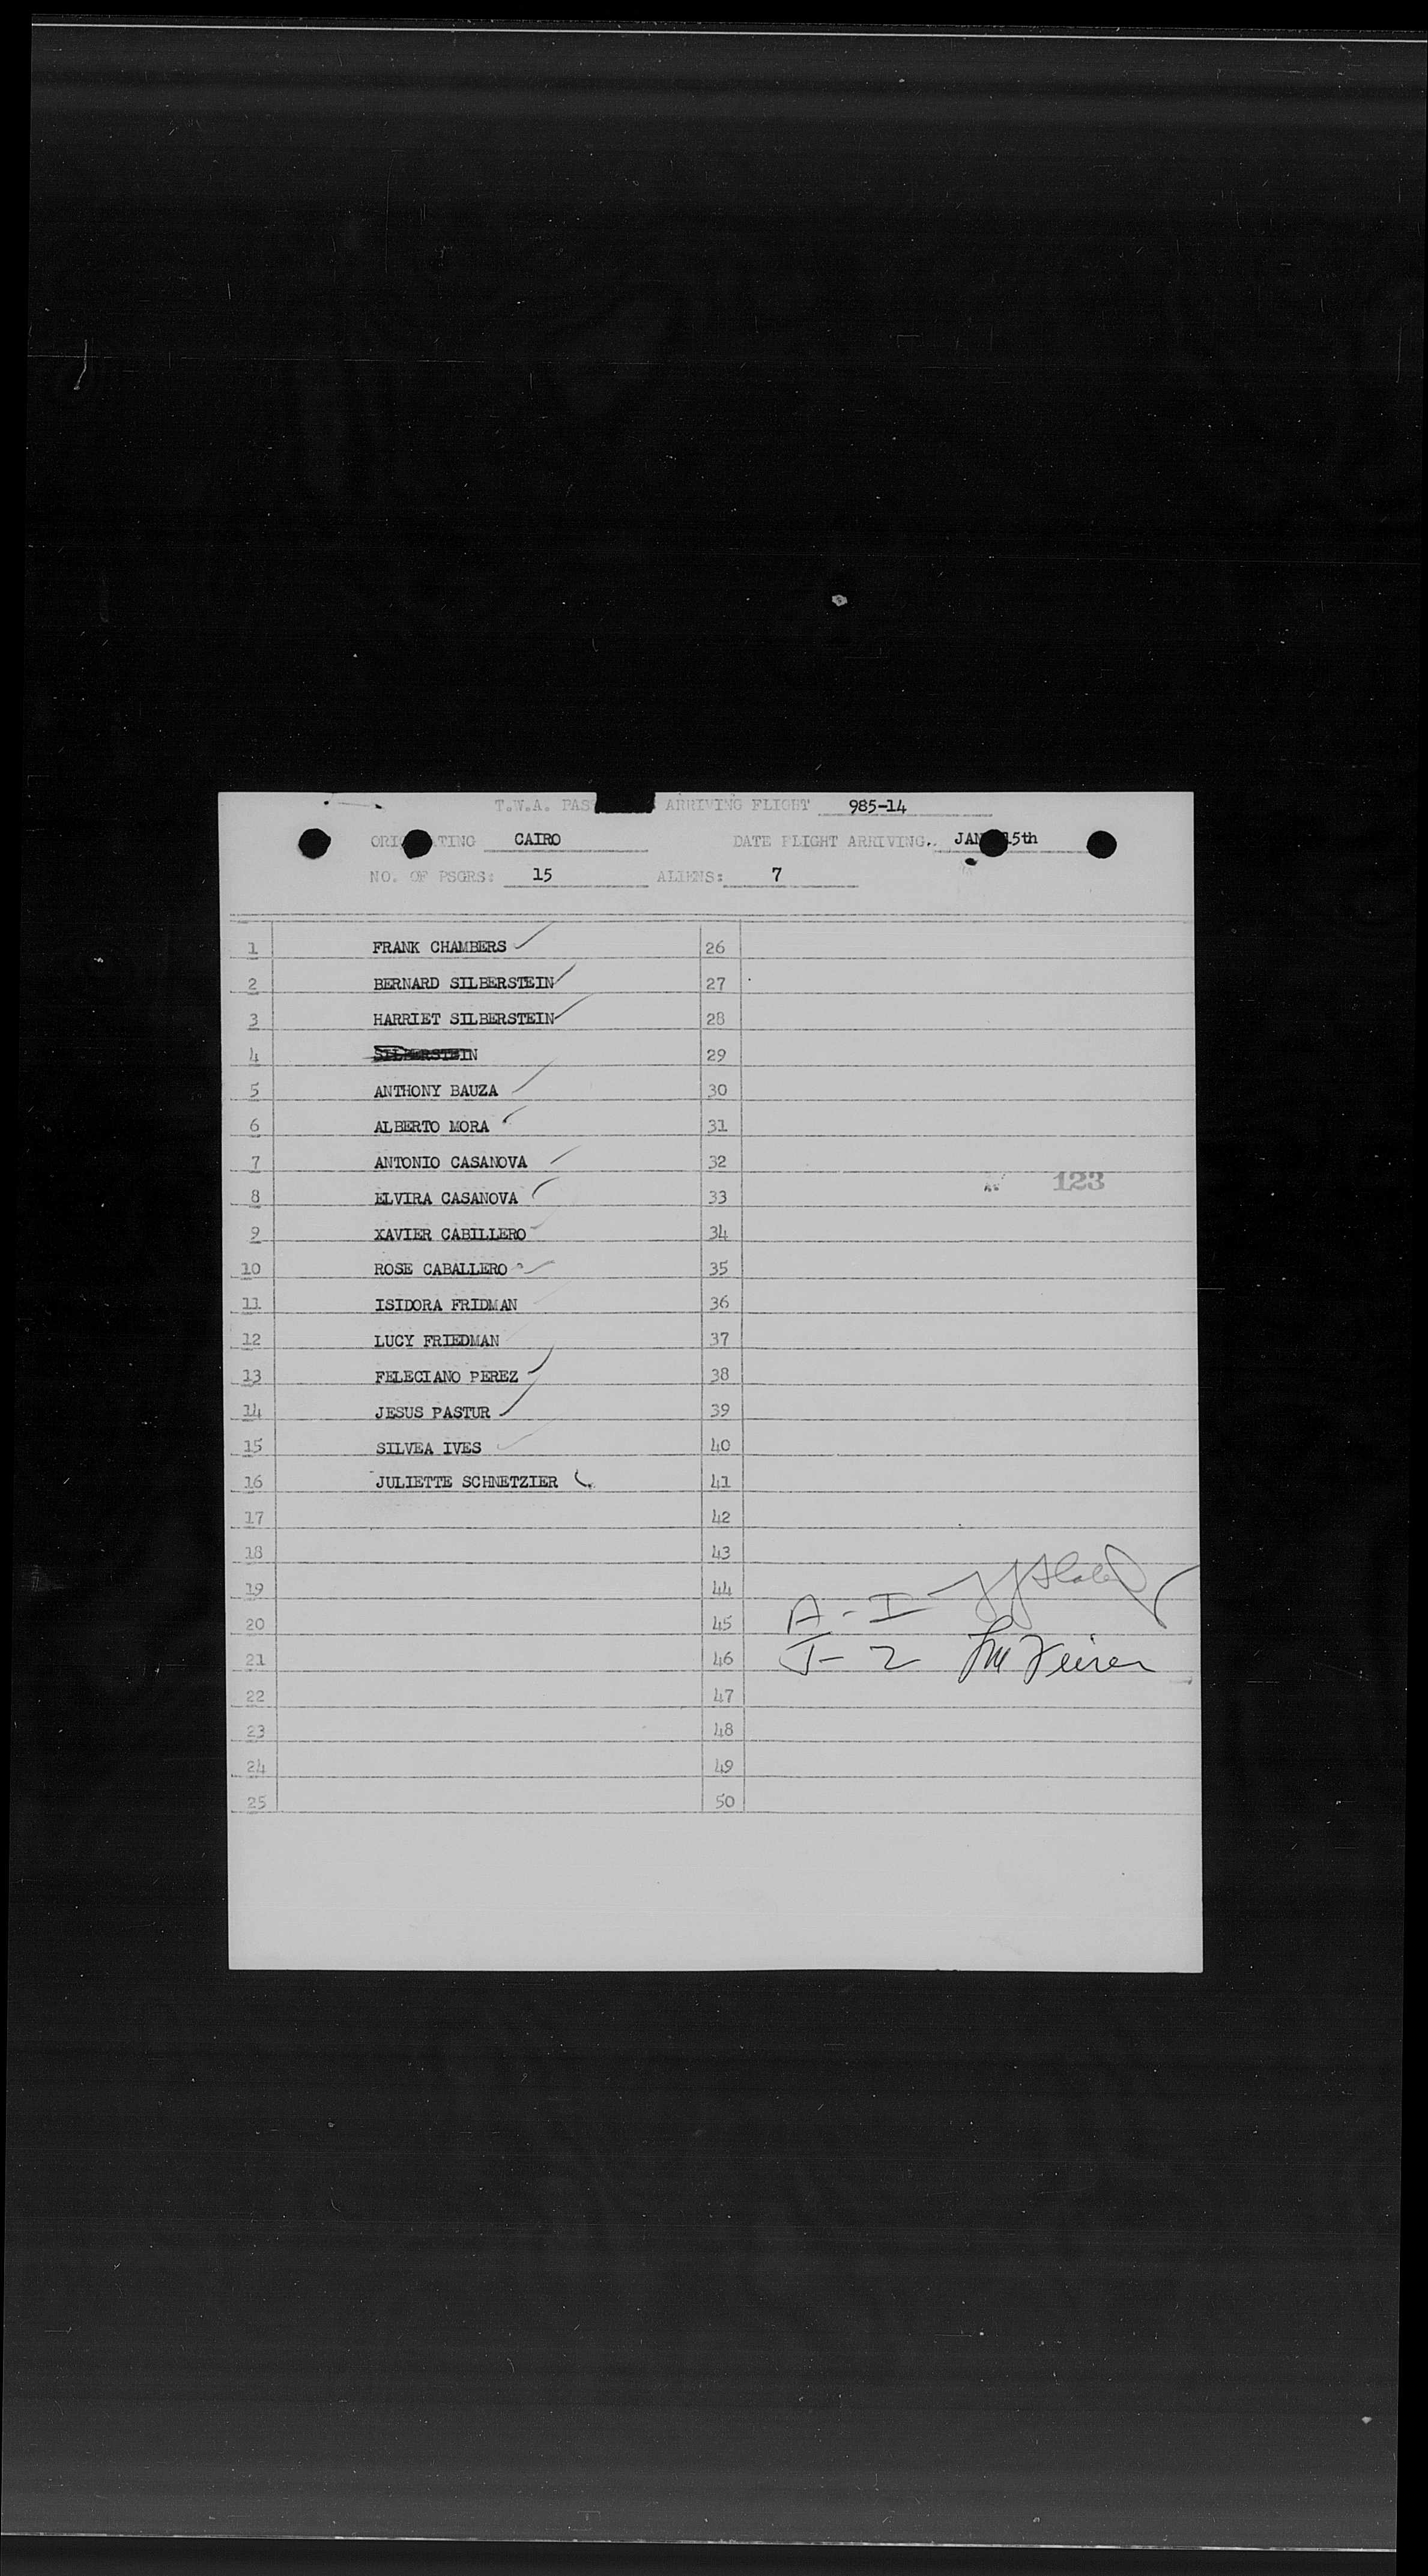 T.W.A. PAS ARRIVING FLIGHT 985-14
ORI TING CAIRO DATE FLIGHT ARRIVING. JAN 15th
NO. OF PSGRS: 15 ALIENS: 7
1 FRANK CHAMBERS 26
2 BERNARD SILBERSTEIN 27
3 HARRIET SILBERSTEIN 28
4 SILBERSTEIN 29
5 ANTHONY BAUZA 30
6 ALBERTO MORA 31
7 ANTONIO CASANOVA 32
123
8 ELVIRA CASANOVA 33
9 XAVIER CABILLERO 34
10 ROSE CABALLERO 35
11 ISIDORA FRIDMAN 36
12 LUCY FRIEDMAN 37
13 FELECIANO PEREZ 38
14 JESUS PASTUR 39
15 SILVEA IVES 40
16 JULIETTE SCHNETZIER 41
17 42
18 43
19 44
A - I
20 45
21 46 J- 2
22 47
23 48
24 49
25 50